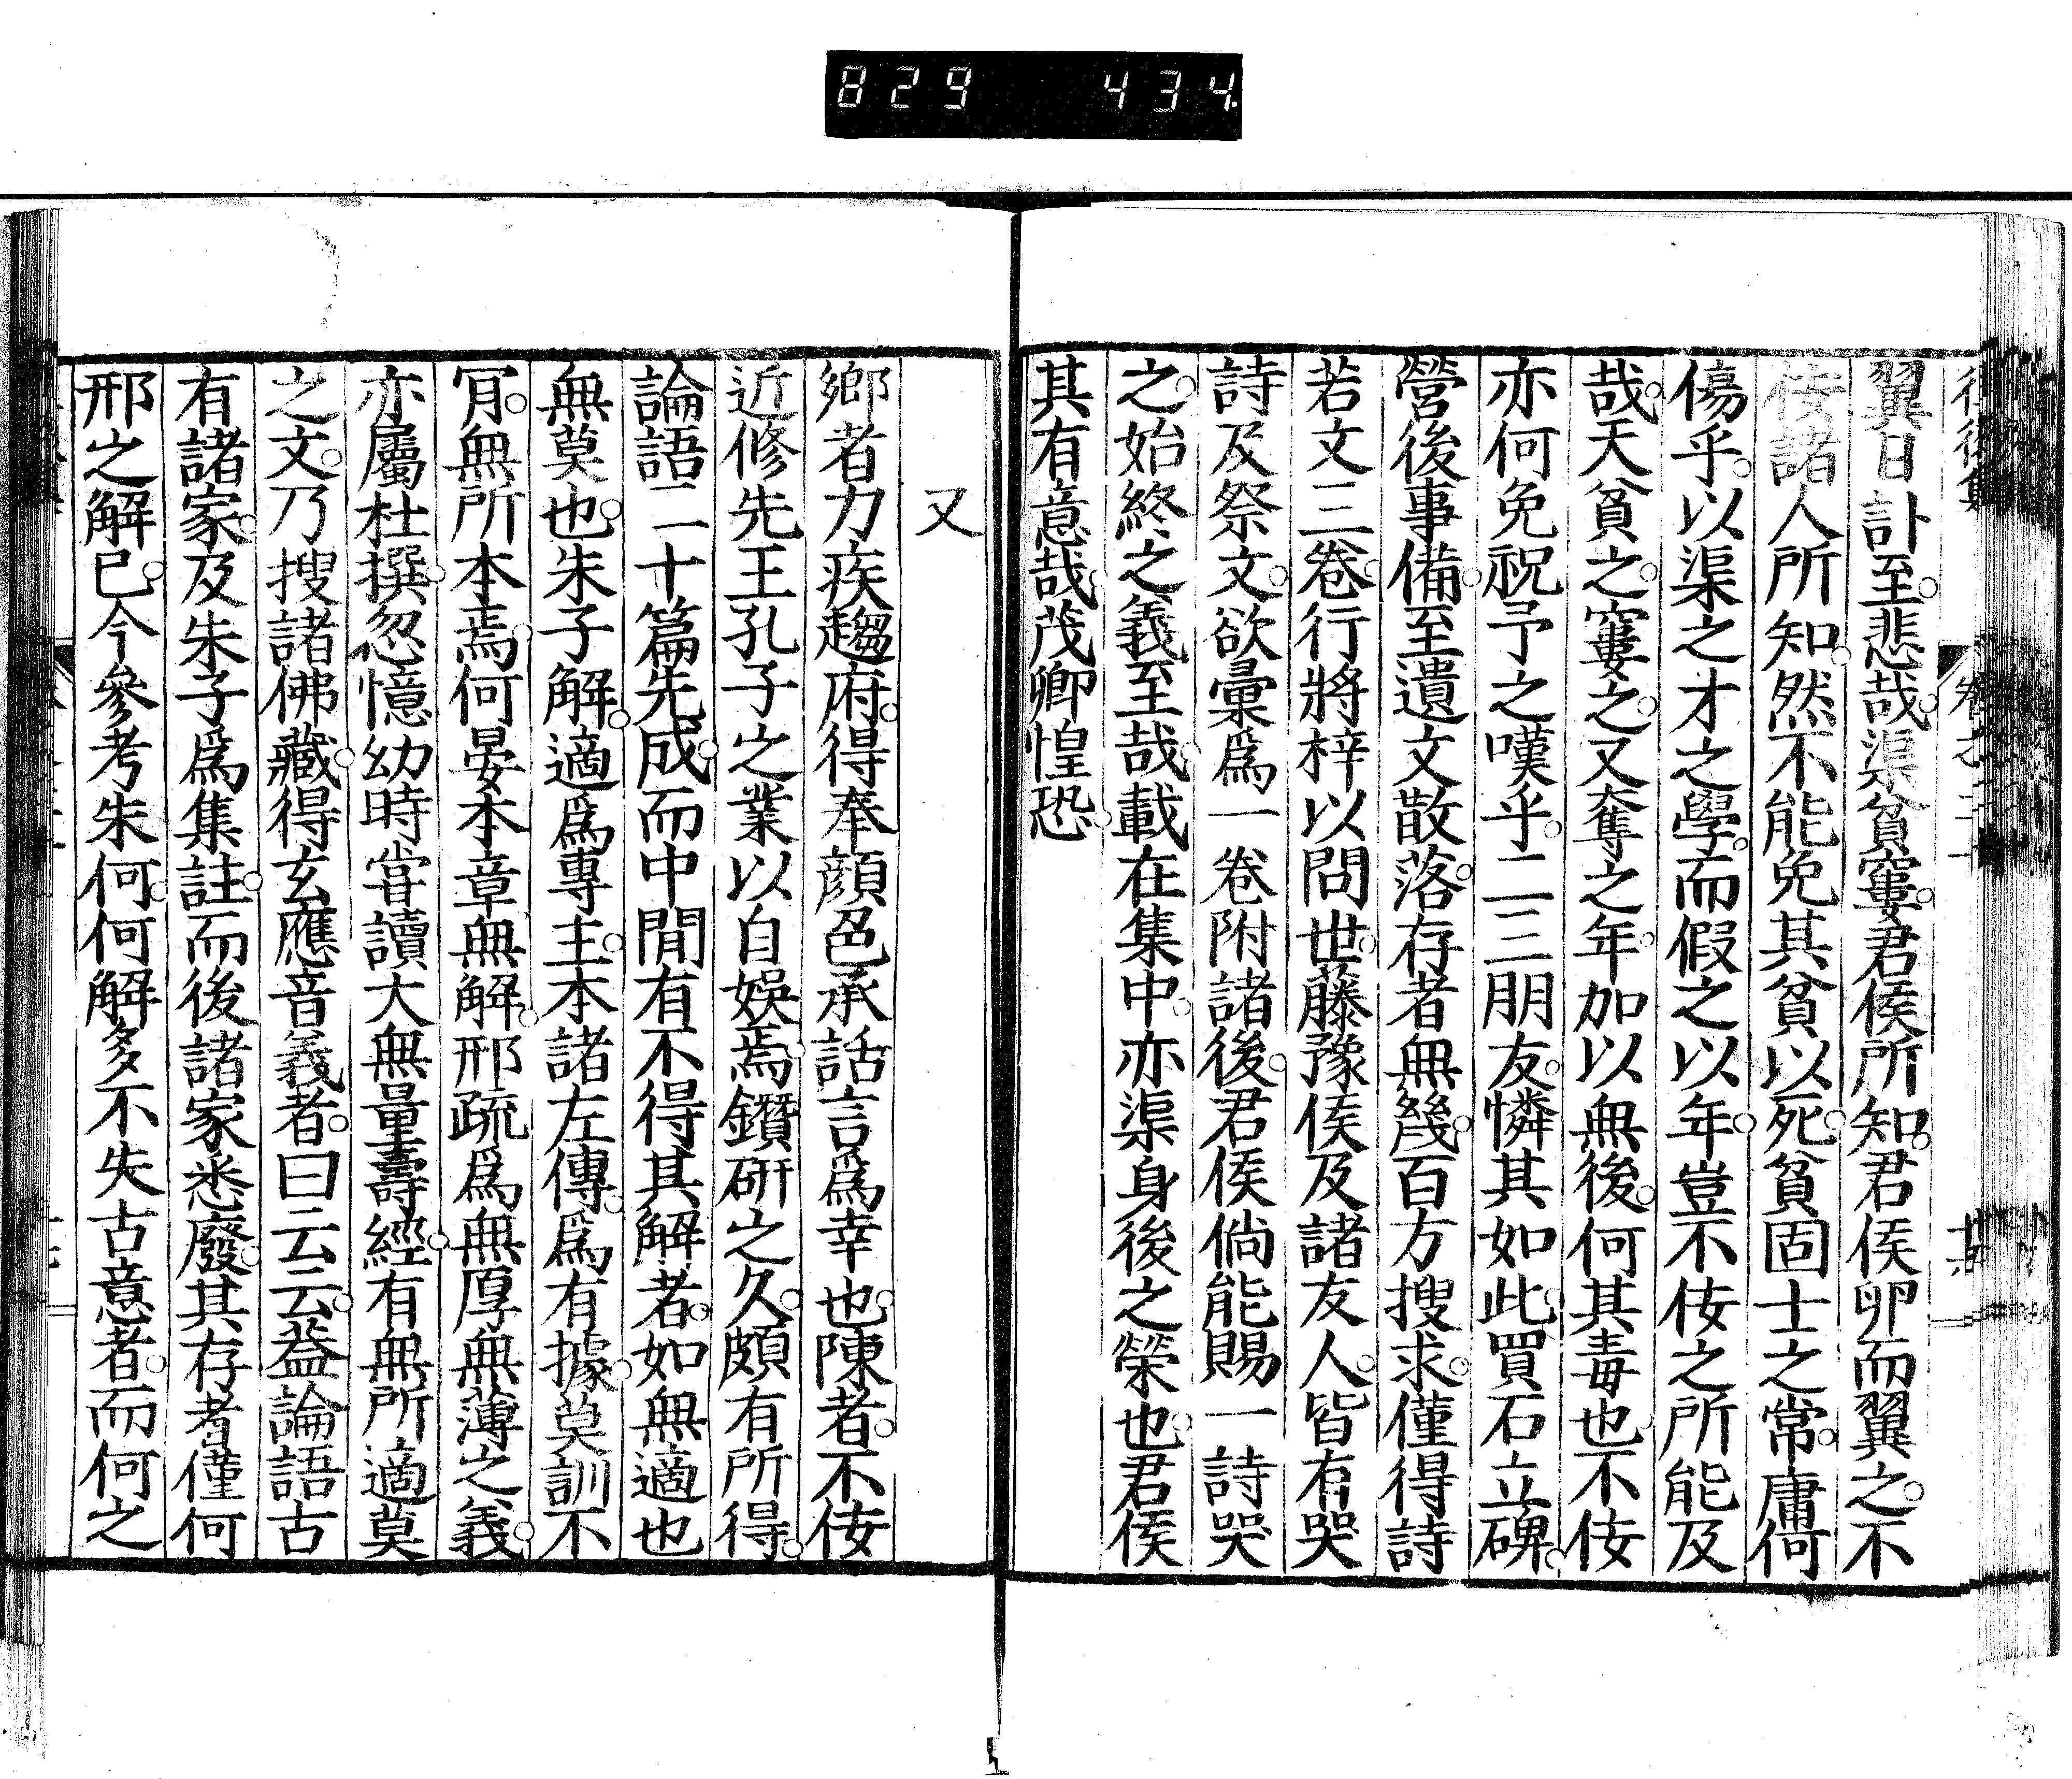 829 434
翼日訃至。悲哉。渠貧窶。君侯所知。君侯卵而翼之。不
侒諸人所知。然不能免其貧以死。貧固士之常。庸何
傷乎。以渠之才之學。而假之以年。豈不侒之所能及
哉。天貧之。窶之。又奪之年。加以無後。何其毒也。不侒
亦何免祝予之嘆乎。二三朋友。憐其如此。買石立碑。
營後事備。至遺文散落。存者無幾。百方搜求。僅得詩
若文三卷。行將梓以問世。藤豫侯及諸友人。皆有哭
詩及祭文。欲彙爲一卷附諸後。君侯倘能賜一詩哭
之。始終之義至哉。載在集中。亦渠身後之榮也。君侯
其有意哉。茂卿惶恐。
又
鄉者力疾趨府。得奉顔色承話言爲幸也。陳者。不侒
近修先王孔子之業以自娛焉。鑽研之久。頗有所得。
論語二十篇先成。而中間有不得其解者。如無適也
無莫也。朱子解。適爲專主。本諸左傳。爲有據。莫訓不
肎。無所本焉。何晏本章無解。邢疏爲無厚無薄之義。
亦屬杜撰。忽憶幼時甞讀大無量壽經。有無所適莫
之文。乃搜諸佛藏。得玄應音義者。曰云云。葢論語古
有諸家。及朱子爲集註。而後諸家悉廢。其存者僅何
邢之解已。今參考朱何。何解多不失古意者。而何之